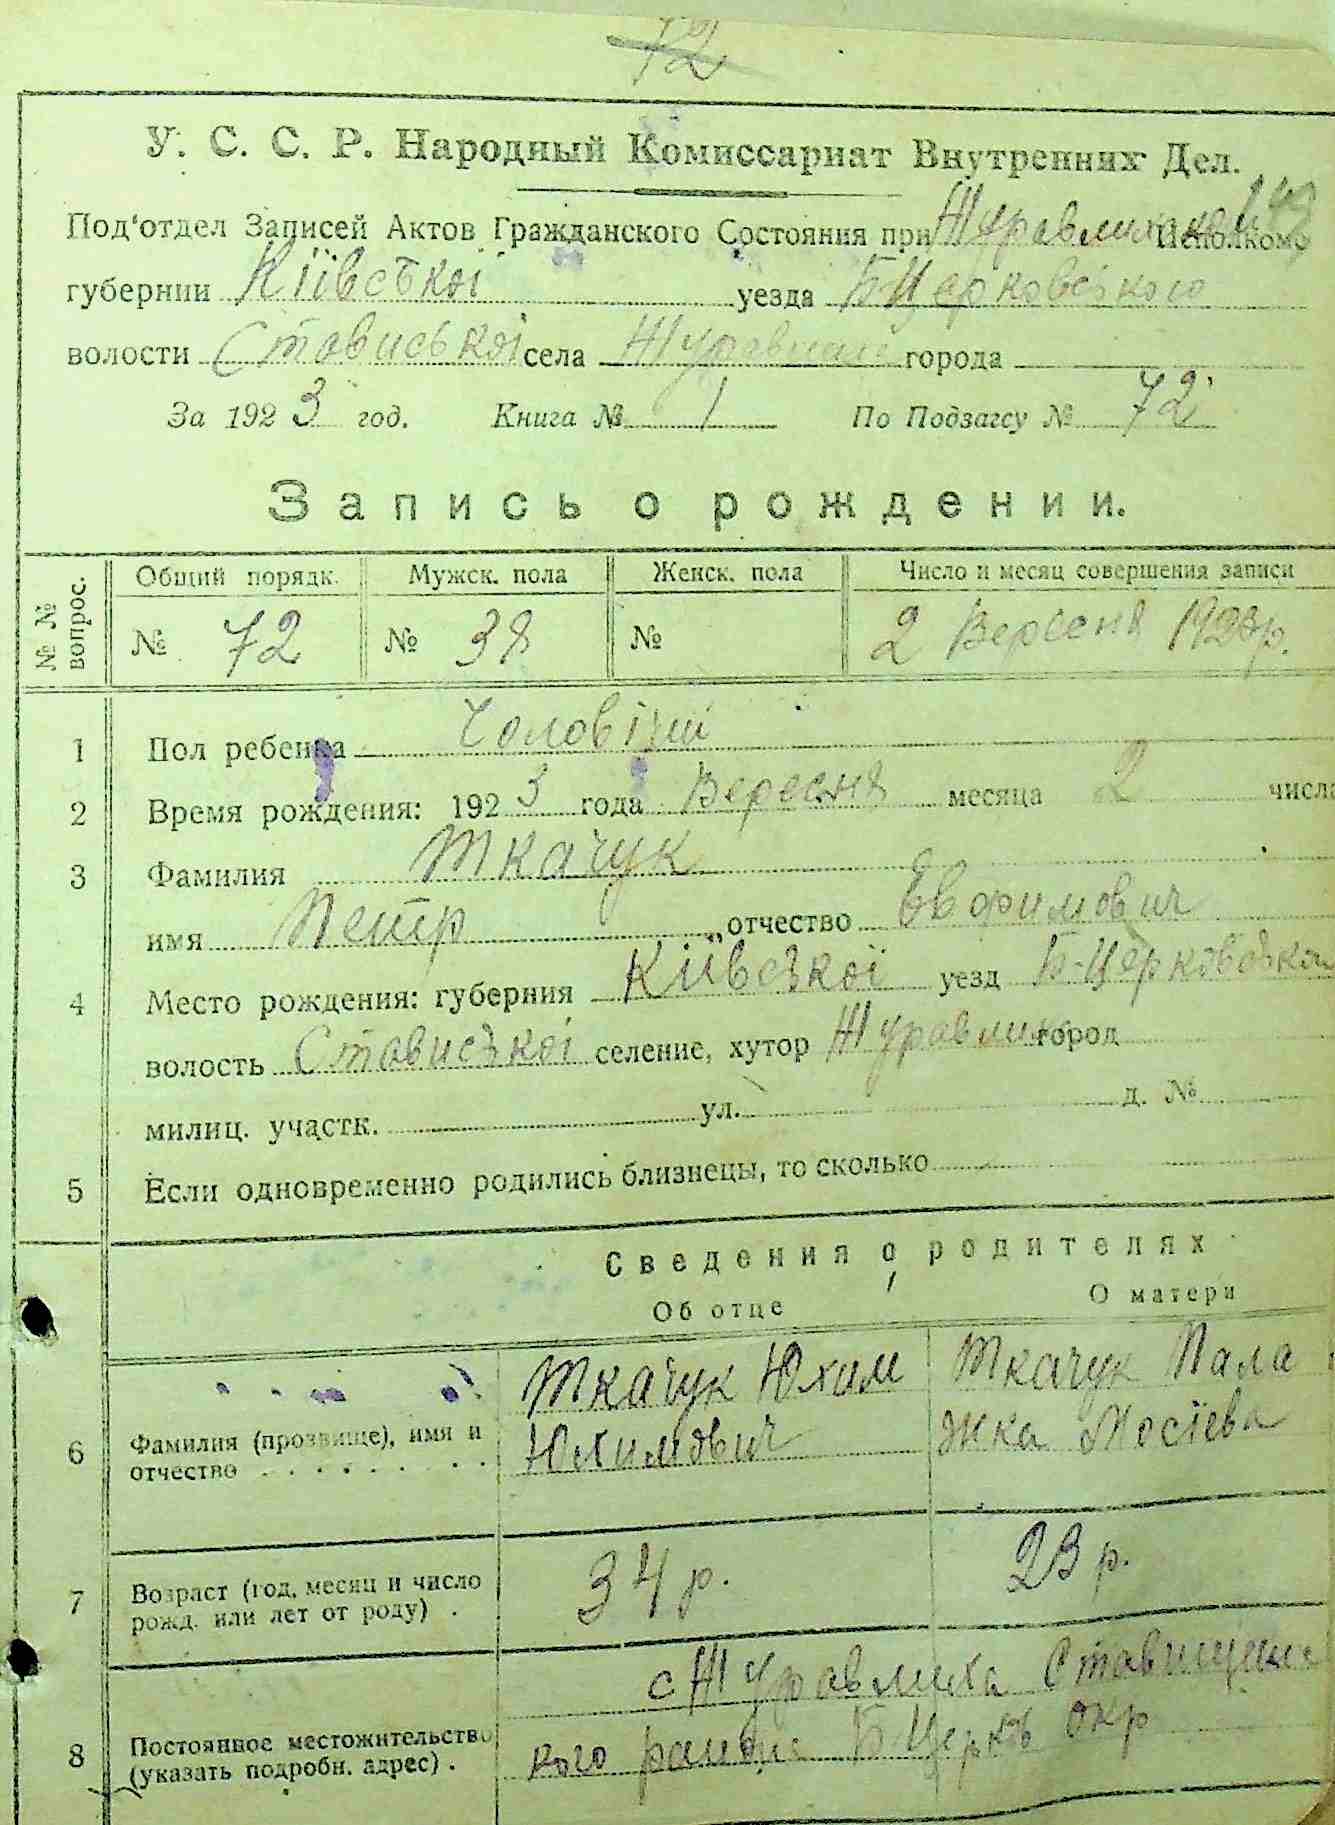 72
У. С. С. Р. Народный Комиссариат Внутренних Дел.
149
Под'отдел Записей Актов Гражданского Состояния при Журавлиськом Исполкоме
губернии Київської уезда БЦерковського
волости Стависької села Журавлихи города
За 1923 год. Книга № 1 По Подзагсу № 72
Запись о рождении.
№ № вопрос. Общий порядк. Мужск. пола Женск. пола Число и месяц совершения записи
№ 72 № 38 № 2 Вересня 1923р.
1 Пол ребенка Чоловічий
2 Время рождения: 1923 года Вересня месяца 2 числа
3 Фамилия Ткачук
имя Петр отчество Евфимович
4 Место рождения: губерния Київської уезд Б-Церковської
волость Стависької селение, хутор Журавлиха город
милиц. участк. ул. д. №
5 Если одновременно родились близнецы, то сколько
Сведения о родителях
Об отце О матери
Ткачук Юхим Ткачук Пала
6 Фамилия (прозвище), имя и отчество Юхимович жка Мосієва
7 Возраст (год, месяц и число рожд. или лет от роду) . 34 р. 23 р.
с Журавлиха Ставищенс
8 Постоянное местожительство (указать подробн. адрес) . кого району БЦеркв окр